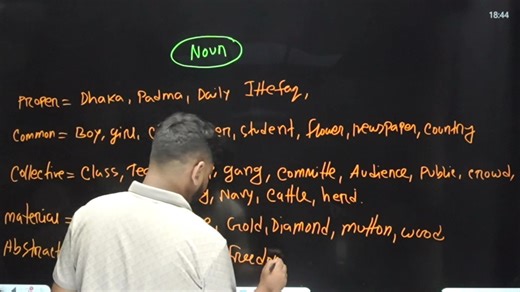 18:44
Noun
Proper = Dhaka, Padma, Daily Ittefaq,
Common = Boy, girl, student, flower, newspaper, country
Collective = Class, gang, Committe, Audience, Public, crowd,
Navy, Cattle, herd.
Material = Gold, Diamond, mutton, wood
Abstract